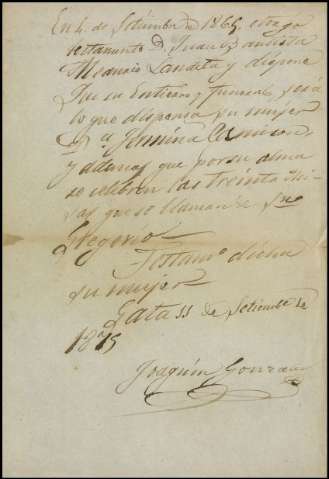 En 4 de Setiembre de 1865, otorgó
testamento D. Juan Bautista
Monsio Landeta y dispone
que su entierro y funeral, será
lo que disponga su mujer
D.ª Fermina
y además que por su alma
se celebren las treinta Mi-
sas que se llaman de Sn
Gregorio
Testamº dicha
su mujer
Gata 11 de Setiembre
1875
Joaquin